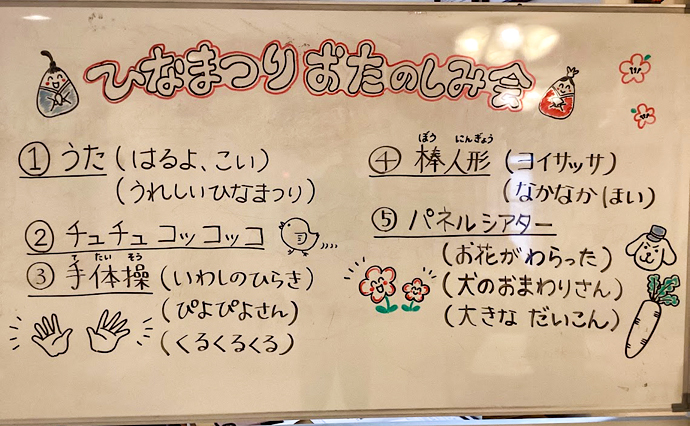 ひなまつり おたのしみ会
① うた (はるよ、こい)
(うれしいひなまつり)
② チュチュ コッコッコ
③ 手体操 (いわしのひらき)
て たい そう
(ぴよぴよさん)
(くるくるくる)
ぼう にんぎょう
④ 棒人形 (ヨイサッサ)
(なかなかほい)
⑤ パネルシアター
(お花がわらった)
(犬のおまわりさん)
(大きな だいこん)